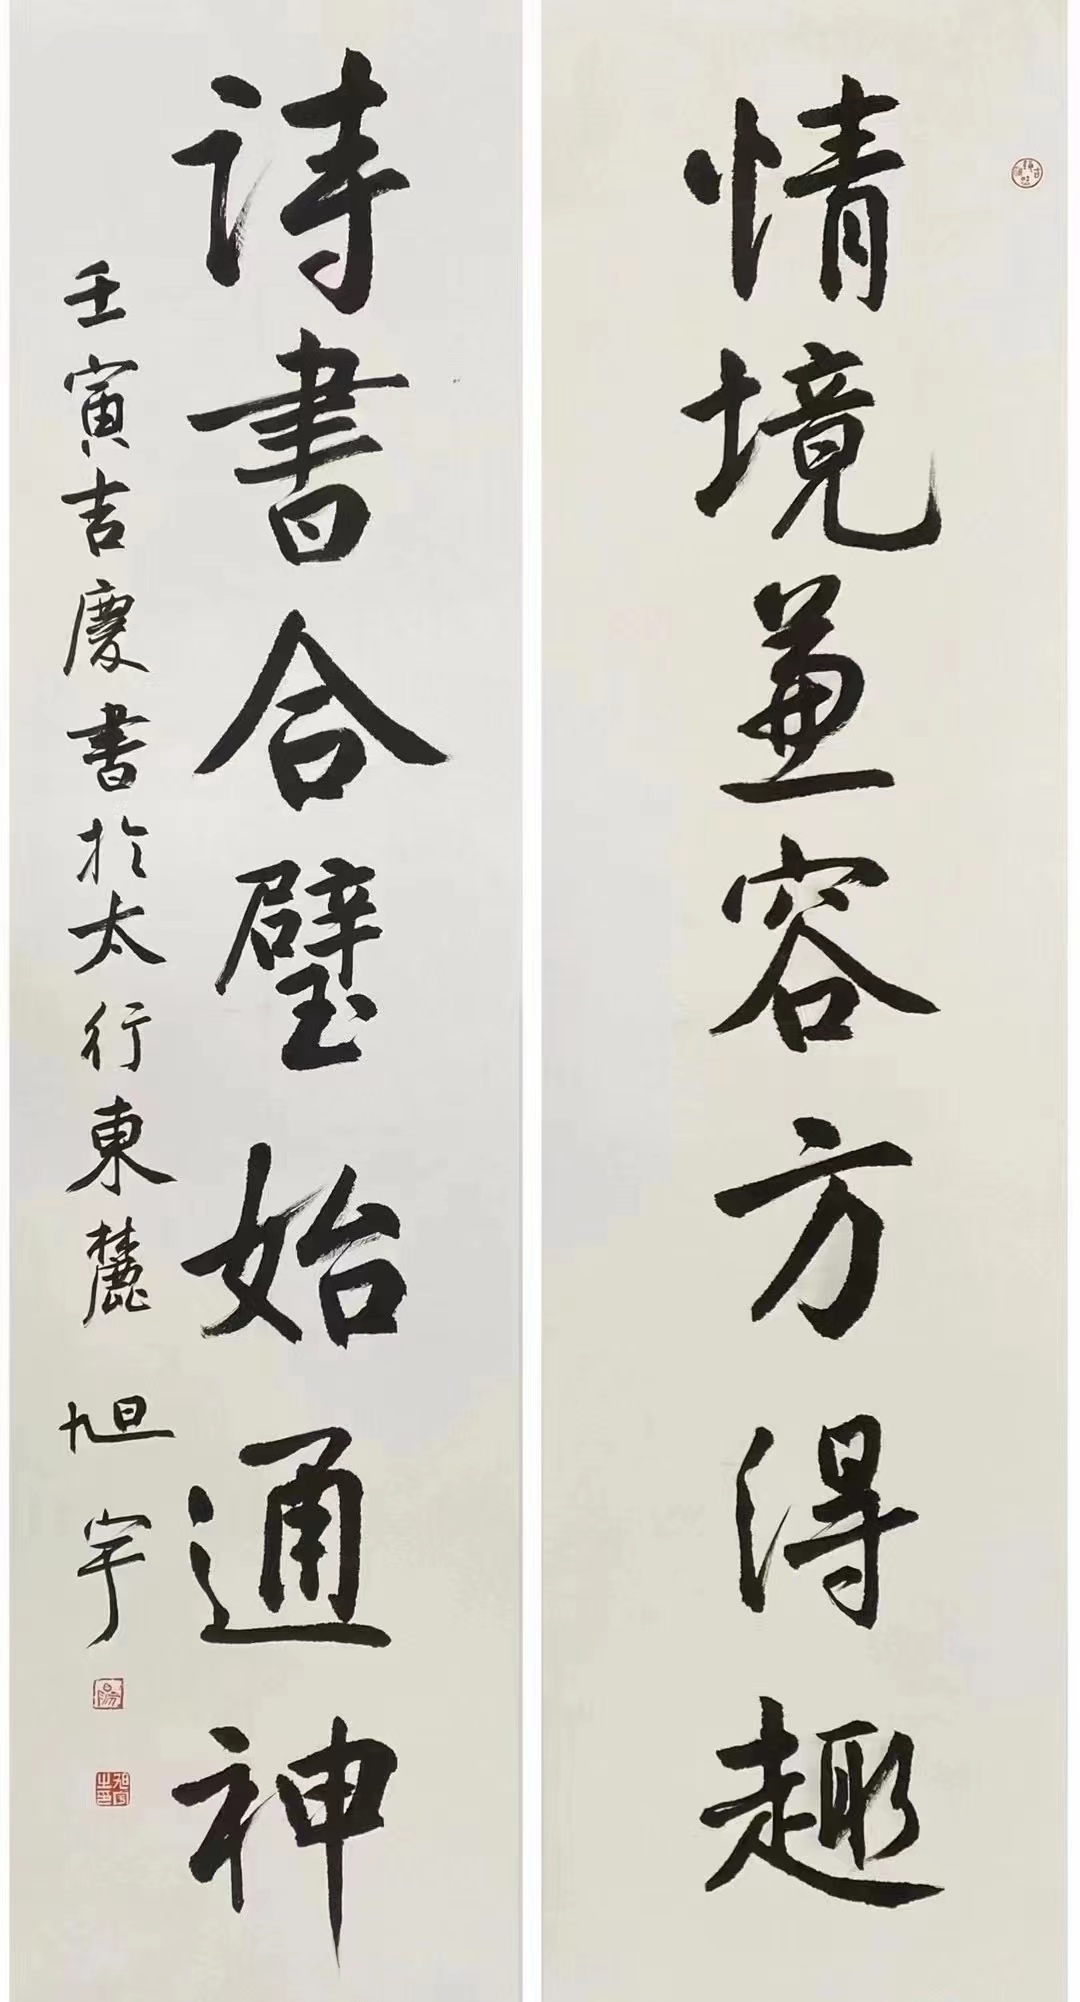 情境兼容方得趣
詩書合璧始通神
壬寅吉慶書於太行東麓 旭宇
旭宇之印